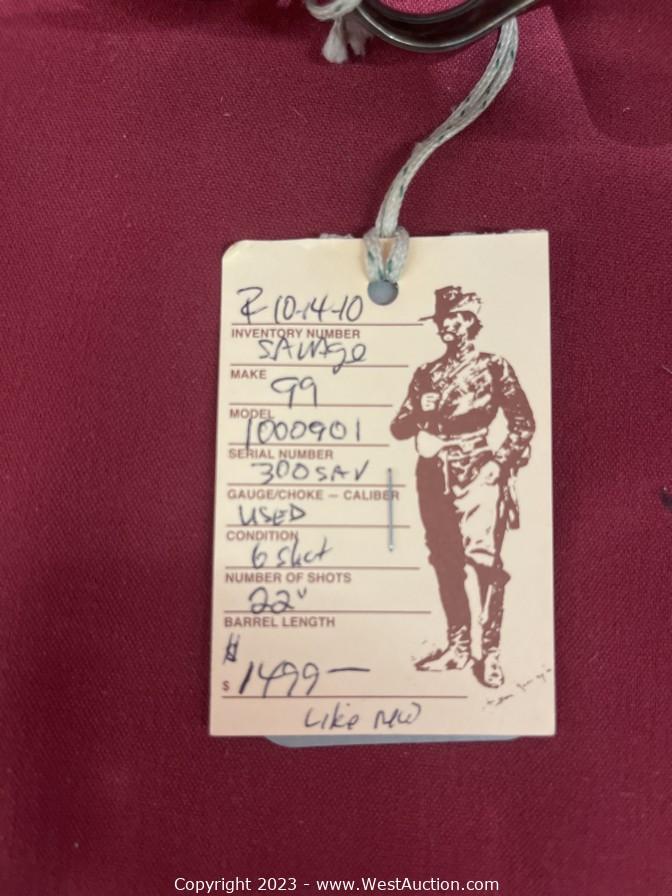 R 10-14-10
INVENTORY NUMBER
SAVAGE
MAKE
99
MODEL
1000901
SERIAL NUMBER
300 SAV
GAUGE/CHOKE — CALIBER
USED
CONDITION
6 shot
NUMBER OF SHOTS
22"
BARREL LENGTH
$
$ 1499—
Like new
Copyright 2023 - www.WestAuction.com